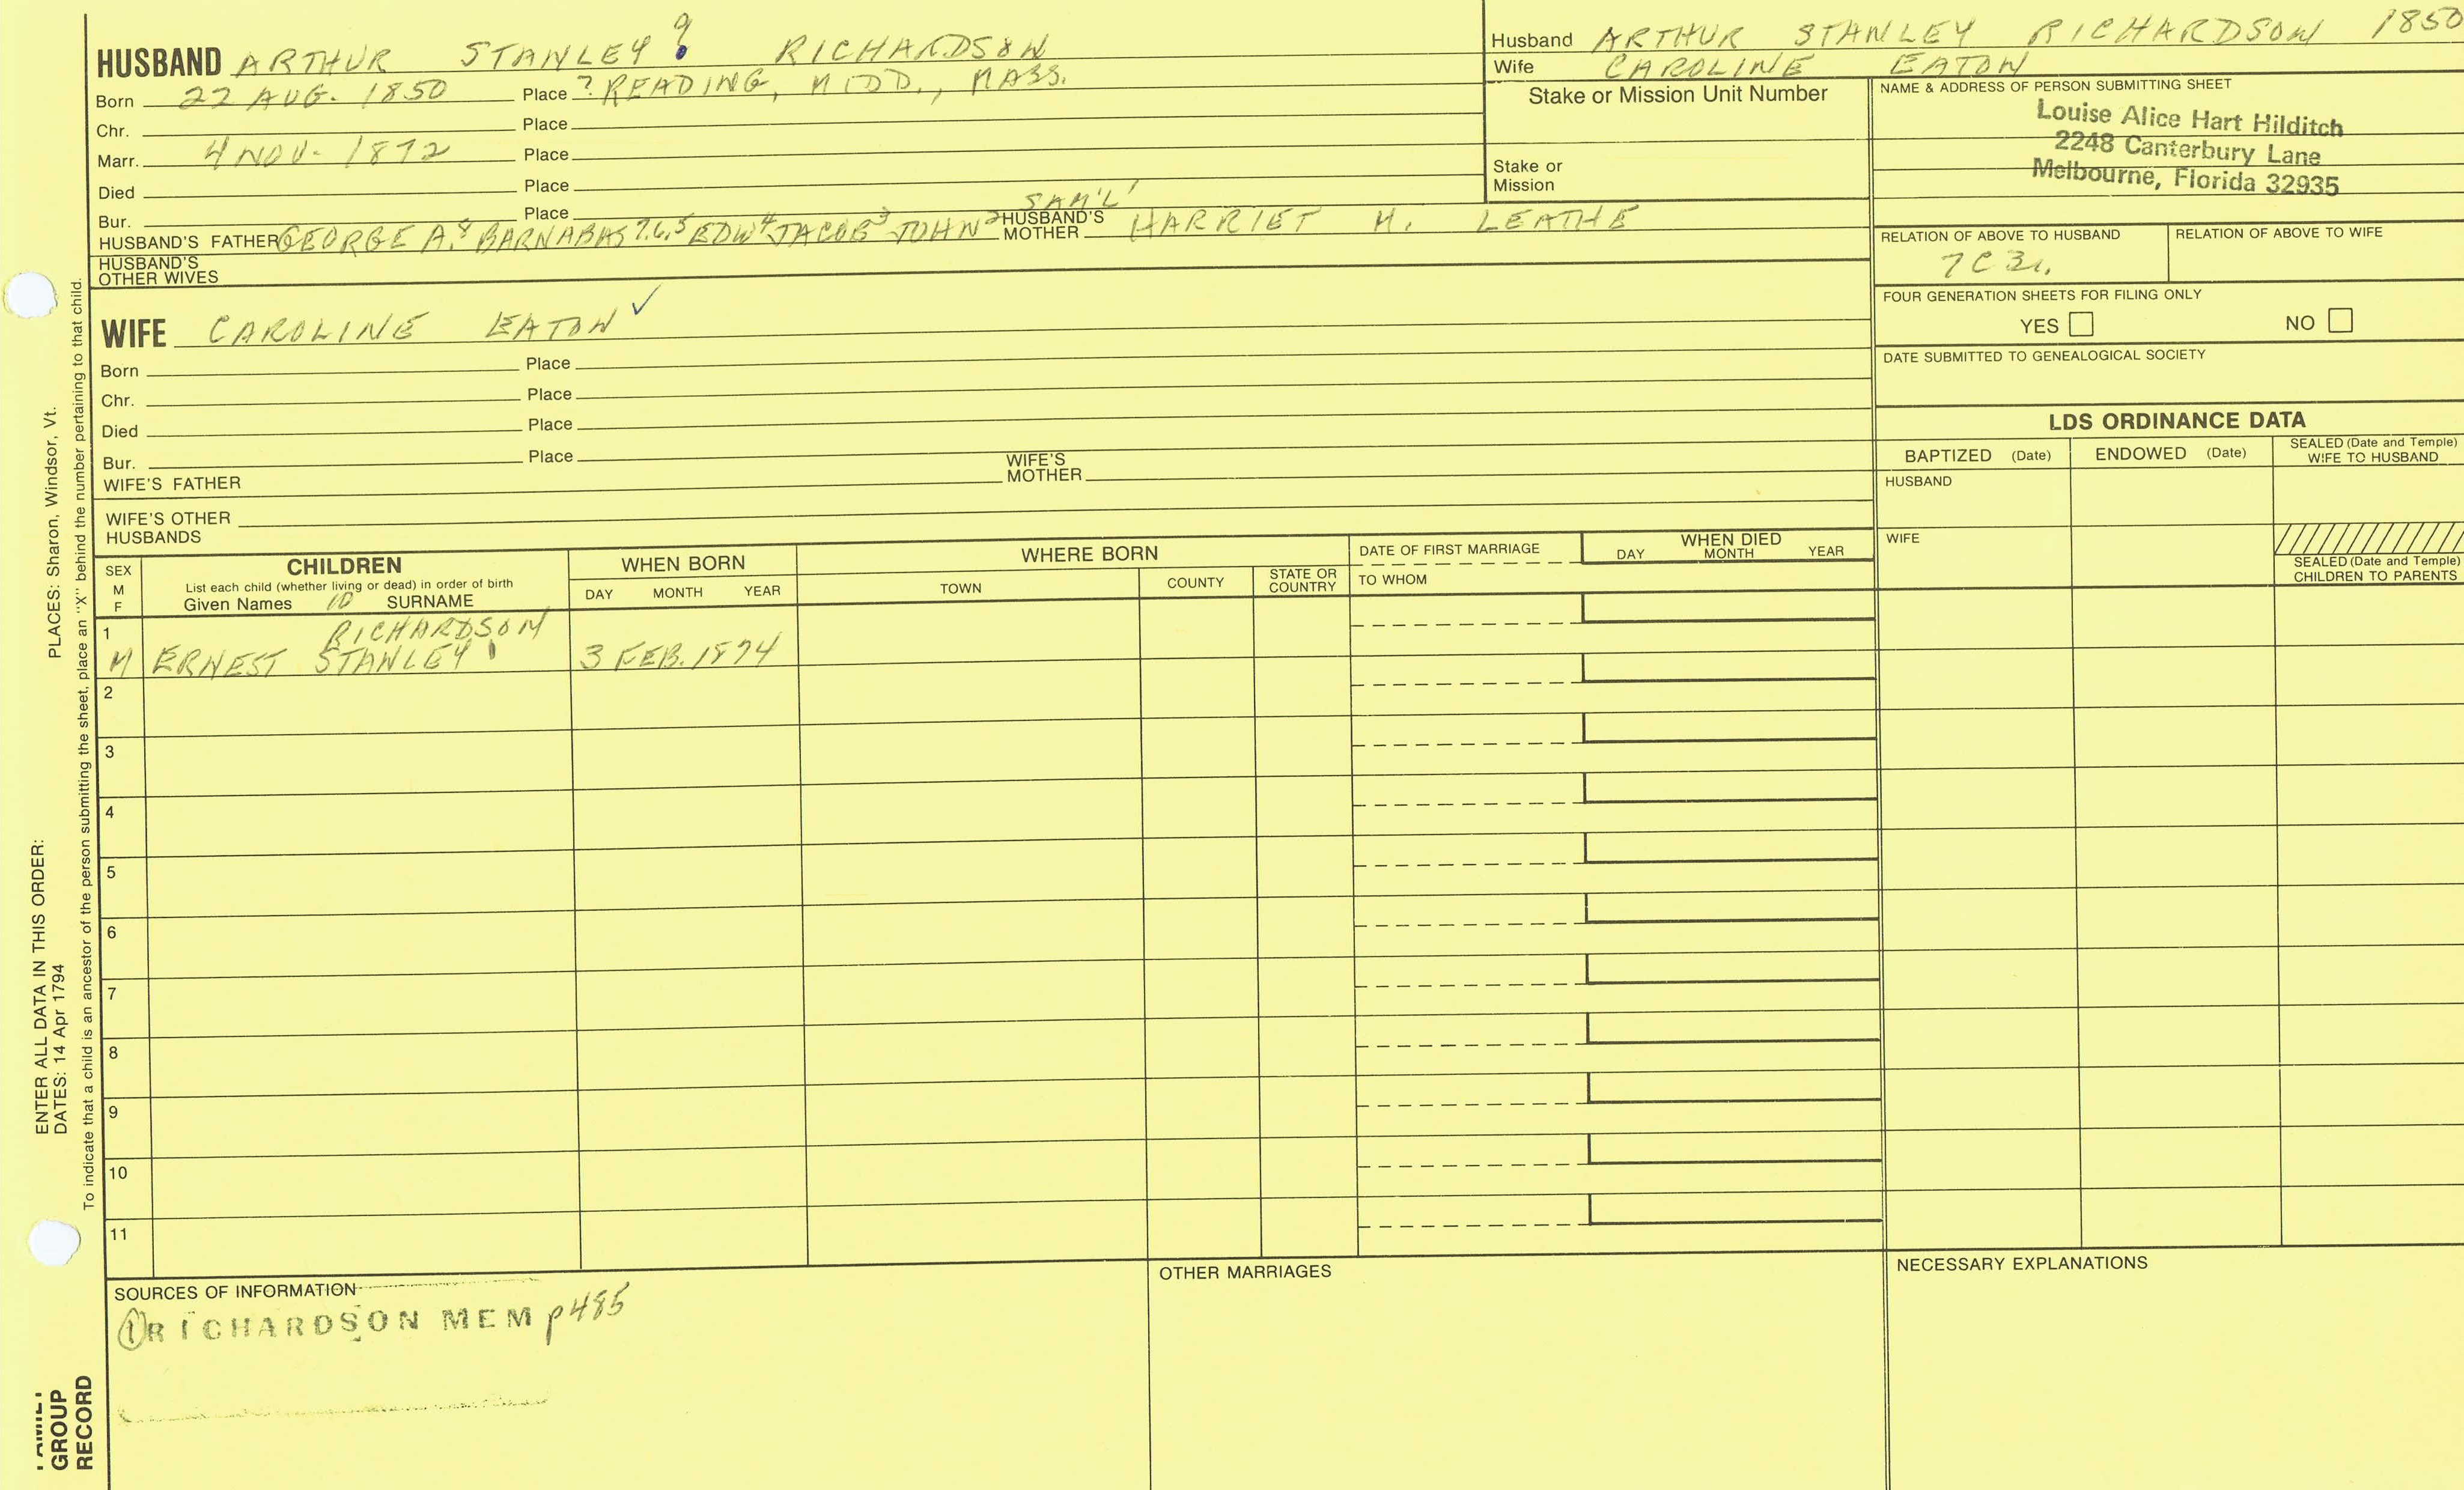 HUSBAND ARTHUR STANLEY 9 RICHARDSON
Born 22 AUG. 1850 Place ? READING, MIDD., MASS.
Chr. Place
Marr. 4 NOV. 1872 Place
Died Place
Bur. Place
HUSBAND'S FATHER GEORGE A.8 BARNABAS 7,6,5 EDW4 JACOB3 JOHN2 SAM'L1 HUSBAND'S MOTHER HARRIET M. LEATHE
HUSBAND'S
OTHER WIVES
WIFE CAROLINE EATON ✓
Born Place
Chr. Place
Died Place
Bur. Place
WIFE'S FATHER WIFE'S MOTHER
WIFE'S OTHER
HUSBANDS
Husband ARTHUR STANLEY RICHARDSON 1850
Wife CAROLINE EATON
Stake or Mission Unit Number
Stake or
Mission
NAME & ADDRESS OF PERSON SUBMITTING SHEET
Louise Alice Hart Hilditch
2248 Canterbury Lane
Melbourne, Florida 32935
RELATION OF ABOVE TO HUSBAND RELATION OF ABOVE TO WIFE
7C3r.
FOUR GENERATION SHEETS FOR FILING ONLY
YES NO
DATE SUBMITTED TO GENEALOGICAL SOCIETY
LDS ORDINANCE DATA
BAPTIZED (Date) ENDOWED (Date) SEALED (Date and Temple)
WIFE TO HUSBAND
HUSBAND
WIFE
SEALED (Date and Temple)
CHILDREN TO PARENTS
SEX
M
F
CHILDREN
List each child (whether living or dead) in order of birth
Given Names 10 SURNAME
WHEN BORN
DAY MONTH YEAR
WHERE BORN
TOWN COUNTY STATE OR
COUNTRY
DATE OF FIRST MARRIAGE
TO WHOM
WHEN DIED
DAY MONTH YEAR
1 RICHARDSON
M ERNEST STANLEY 1 3 FEB. 1874
2
3
4
5
6
7
8
9
10
11
SOURCES OF INFORMATION
① RICHARDSON MEM p485
OTHER MARRIAGES
NECESSARY EXPLANATIONS
ENTER ALL DATA IN THIS ORDER:
DATES: 14 Apr 1794 PLACES: Sharon, Windsor, Vt.
To indicate that a child is an ancestor of the person submitting the sheet, place an "X" behind the number pertaining to that child.
FAMILY
GROUP
RECORD